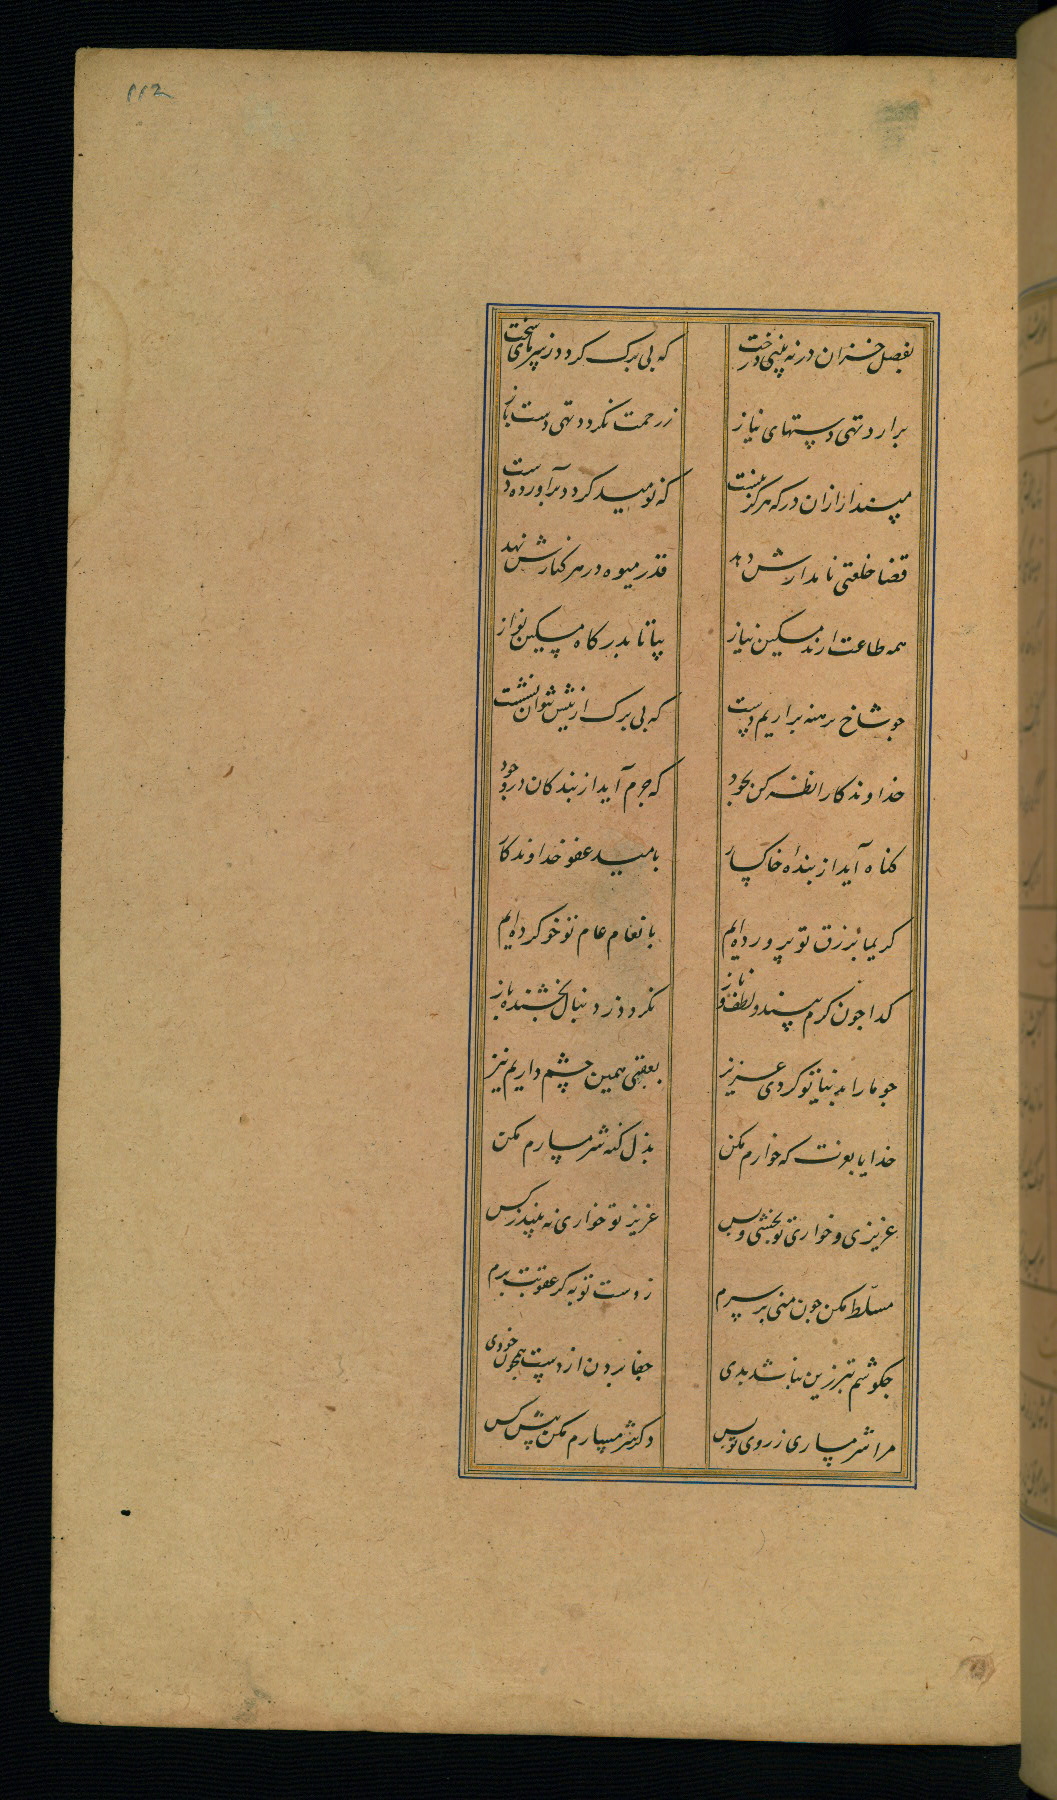 ۱۱۲
بفصل خزان در نه بینی درخت
که بی برک کردد ز سرمای سخت
برارد تهی دستهای نیاز
ز رحمت نکردد تهی دست باز
مپندار ازان در که هرکز نبست
که نومید کردد برآورده دست
قضا خلعتی نامدارش دهد
قدر میوه در هر کنارش نهد
همه طاعت ارند مسکین نیاز
بیا تا بدرکاه مسکین نواز
جو شاخ برهنه براریم دست
که بی برک ازین بیش نتوان نشست
خداوند کارا نظر کن بجود
که جرم آید از بندکان در وجود
کناه آید از بنده خاکسار
بامید عفو خداوند کار
کریما برزق تو پرورده ایم
بانعام عام تو خو کرده ایم
کدا جون کرم بیند و لطف و ناز
نکردد ز دنبال بخشنده باز
جو ما را بدنیا تو کردی عزیز
بعقبی همین چشم داریم نیز
خدایا بعزت که خوارم مکن
بذل کنه شرمسارم مکن
عزیزی و خواری تو بخشی و بس
عزیز تو خواری نه بیند ز کس
مسلّط مکن جون منی بر سرم
ز دست تو به کر عقوبت برم
بجفا بردن از دست همچون خودی
مرا شرمساری ز روی تو بس
دکر شرمسارم مکن پیش کس